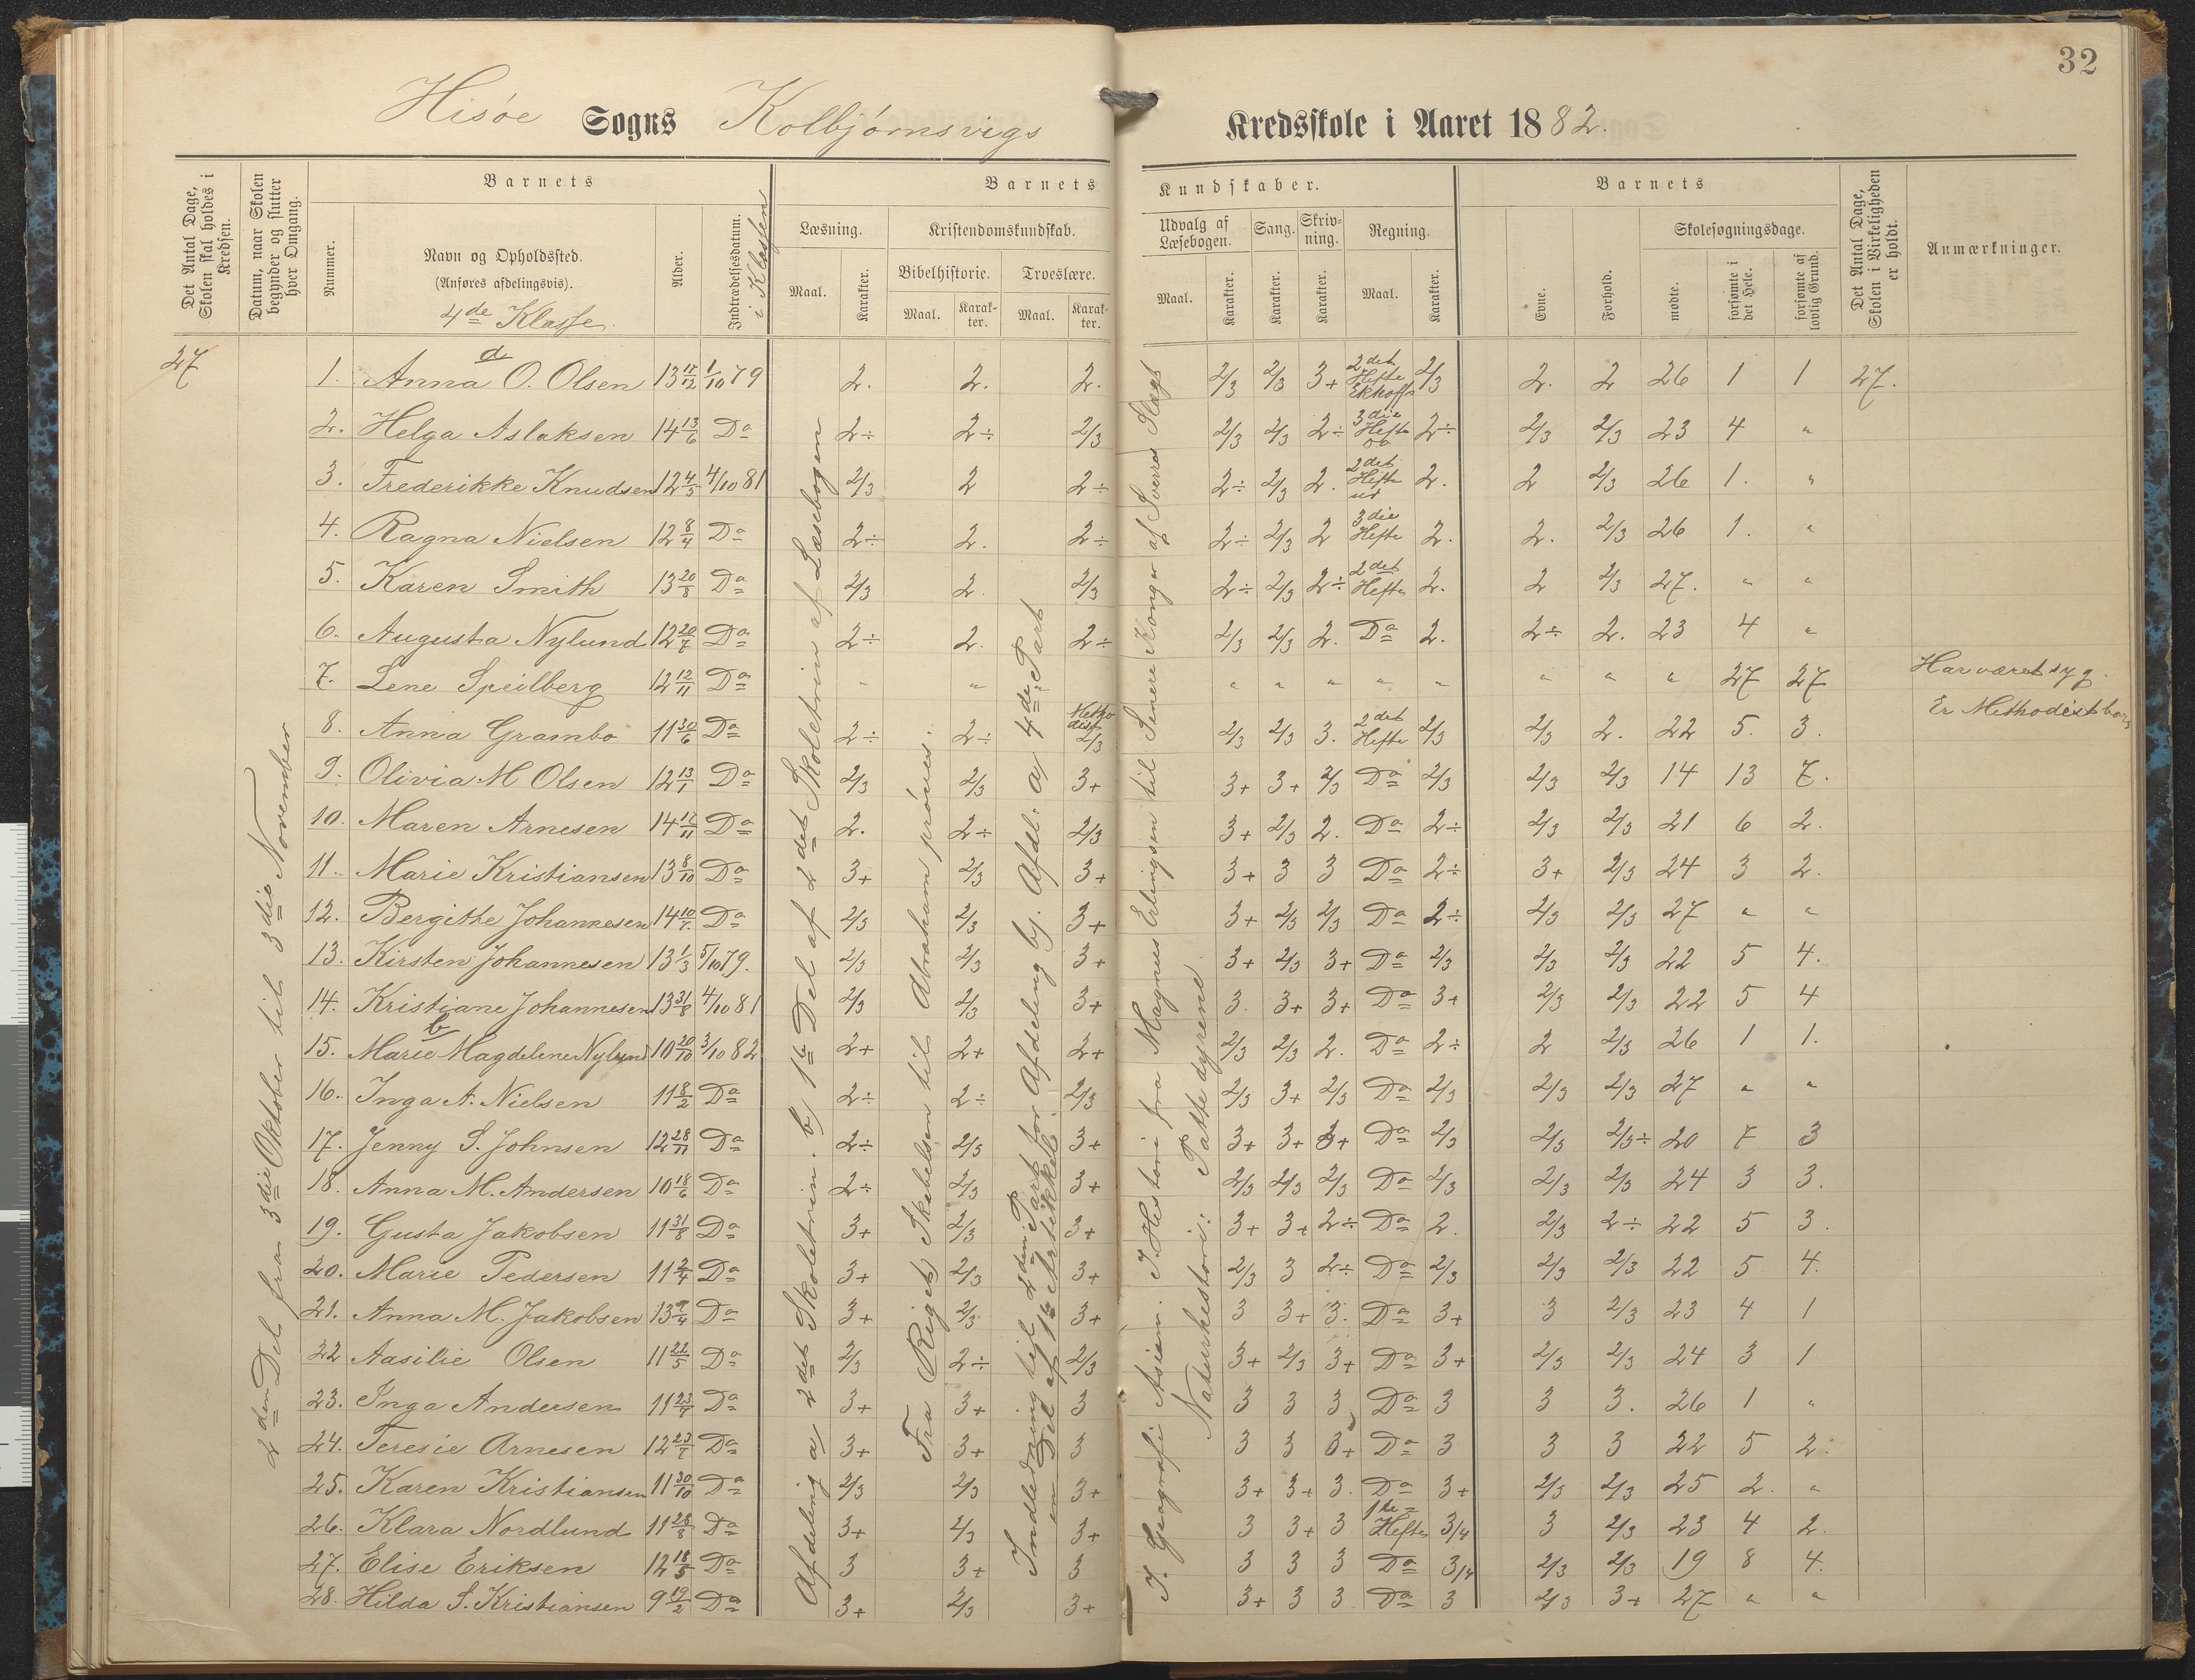 32
Hisøe Sogns Kolbjørnsvigs Kredsskole i Aaret 1882.
Det Antal Dage, Skolen skal holdes i Kredsen.
Datum, naar Skolen begynder og slutter hver Omgang.
Barnets
Nummer.
Navn og Opholdssted.
(Anføres afdelingsvis).
4de Klasse
Alder.
Indtrædelsesdatum.
i Klassen
Barnets Kundskaber.
Læsning.
Maal. Karakter.
Kristendomskundskab.
Bibelhistorie. Troeslære.
Maal. Karakter. Maal. Karakter.
Udvalg af Læsebogen. Sang. Skrivning. Regning.
Maal. Karakter. Karakter. Karakter. Maal. Karakter.
Barnets
Evne. Forhold.
Skolesøgningsdage.
mødte. forsømte i det Hele. forsømte af lovlig Grund.
Det Antal Dage, Skolen i Virkeligheden er holdt.
Anmærkninger.
27
2den Del fra 3die Oktober til 3die November
Afdeling a 2det Skoletrin. b) 1ste Del af 2det Skoletrin af Læsebogen
Fra Rigets Skabelsen til Abraham prøves.
Indledning til 2den Part for Afdeling b). Afdl: a) 4de Part
en Del af 1ste Artikkel
I. Geografi Asien. I. Histori fra Magnus Erlingsen til Senere Konger af Sverres Slægt
Naturhistori: Pattedyrene
a
1. Anna O. Olsen 13 11/12 1/10 79 2. 2. 2. 2/3 2/3 3+ 2det Hefte Ekhoff 2/3 2. 2 26 1 1 27.
2. Helga Aslaksen 14 13/6 Do 2÷ 2÷ 2/3 2/3 2/3 2÷ 3die Hefte 2÷ 2/3 2/3 23 4 "
3. Frederikke Knudsen 12 4/5 4/10 81 2/3 2 2÷ 2÷ 2/3 2. 2det Hefte 2. 2 2/3 26 1. "
4. Ragna Nielsen 12 8/4 Do 2÷ 2. 2÷ 2÷ 2/3 2 3die Hefte 2. 2. 2/3 26 1. "
5. Karen Smith 13 20/8 Do 2/3 2. 2/3 2÷ 2/3 2÷ 2det Hefte 2. 2 2/3 27. " "
6. Augusta Nylund 12 20/7 Do 2÷ 2. 2÷ 2/3 2/3 2. Do 2. 2÷ 2. 23 4 "
7. Lene Speilberg 12 12/11 Do " " " " " " " " " " 27 27 Har været syg.
8. Anna Grambo 11 30/6 Do 2÷ 2÷ Methodist 2/3 2/3 2/3 3. 2det Hefte 2/3 2/3 2. 22 5. 3. Er Methodistbarn
9. Olivia M Olsen 12 13/1 Do 2/3 2/3 3+ 3+ 3+ 2/3 Do 2/3 2/3 2/3 14 13 7.
10. Maren Arnesen 14 12/11 Do 2. 2÷ 2/3 3+ 2/3 2. Do 2÷ 2/3 2/3 21 6 2.
11. Marie Kristiansen 13 8/10 Do 3+ 2/3 3+ 3+ 3 3 Do 2÷ 3+ 2/3 24 3 2.
12. Bergithe Johannesen 14 10/7 Do 2/3 2/3 3+ 3+ 2/3 2/3 Do 2÷ 2/3 2/3 27 " "
13. Kirsten Johannesen 13 1/3 5/10 79. 2/3 2/3 3+ 3+ 2/3 3+ Do 2/3 2/3 2/3 22 5 4.
14. Kristiane Johannesen 13 31/8 4/10 81 2/3 2/3 3+ 3. 3+ 3+ Do 3+ 2/3 2/3 22 5 4
b
15. Marie Magdelene Nylund 10 20/10 3/10 82 2+ 2+ 2+ 2/3 2/3 2. Do 2÷ 2 2/3 26 1 1.
16. Inga A. Nielsen 11 8/2 Do 2÷ 2÷ 2/3 2/3 3+ 2/3 Do 2/3 2/3 2/3 27 " "
17. Jenny S. Johnsen 12 28/11 Do 2÷ 2/3 3+ 3+ 3+ 3+ Do 2/3 2/3 2/3÷ 20 7 3
18. Anna M. Andersen 10 18/6 Do 2÷ 2/3 3+ 2/3 2/3 2/3 Do 2/3 2/3 2/3 24 3 3.
19. Gusta Jakobsen 11 31/8 Do 3+ 2/3 3+ 3+ 3+ 2÷ Do 2. 2/3 2÷ 22 5 3.
20. Marie Pedersen 11 2/4 Do 3+ 2/3 3+ 2/3 3 2÷ Do 2/3 2/3 2/3 22 5 4.
21. Anna M. Jakobsen 13 9/4 Do 3+ 2/3 3+ 3 3+ 3. Do 3+ 3 2/3 23 4 1
22 Aasilie Olsen 11 22/5 Do 2/3 2÷ 2/3 3+ 2/3 3+ Do 3+ 2/3 2/3 24 3 1
23. Inga Andersen 11 23/7 Do 3+ 3+ 3 3 3 3 Do 3 3 3. 26 1 "
24. Teresie Arnesen 12 23/7 Do 3+ 3+ 3 3 3 3+ Do 3 3 3 22 5 2.
25. Karen Kristiansen 11 30/10 Do 2/3 2/3 3+ 3+ 3+ 3. Do 3+ 2/3 2/3 25 2. "
26. Klara Nordlund 11 28/8 Do 3+ 2/3 3+ 3 3+ 3 1ste Hefte 3/4 3 2/3 23 4 2.
27. Elise Eriksen 12 18/5 Do 3 3+ 3 3 3 3 Do 3/4 2/3 2/3 19 8 4.
28. Hilda S. Kristiansen 9 19/2 Do 3+ 2/3 3+ 3+ 3 3 Do 3 2/3 3+ 27 " "